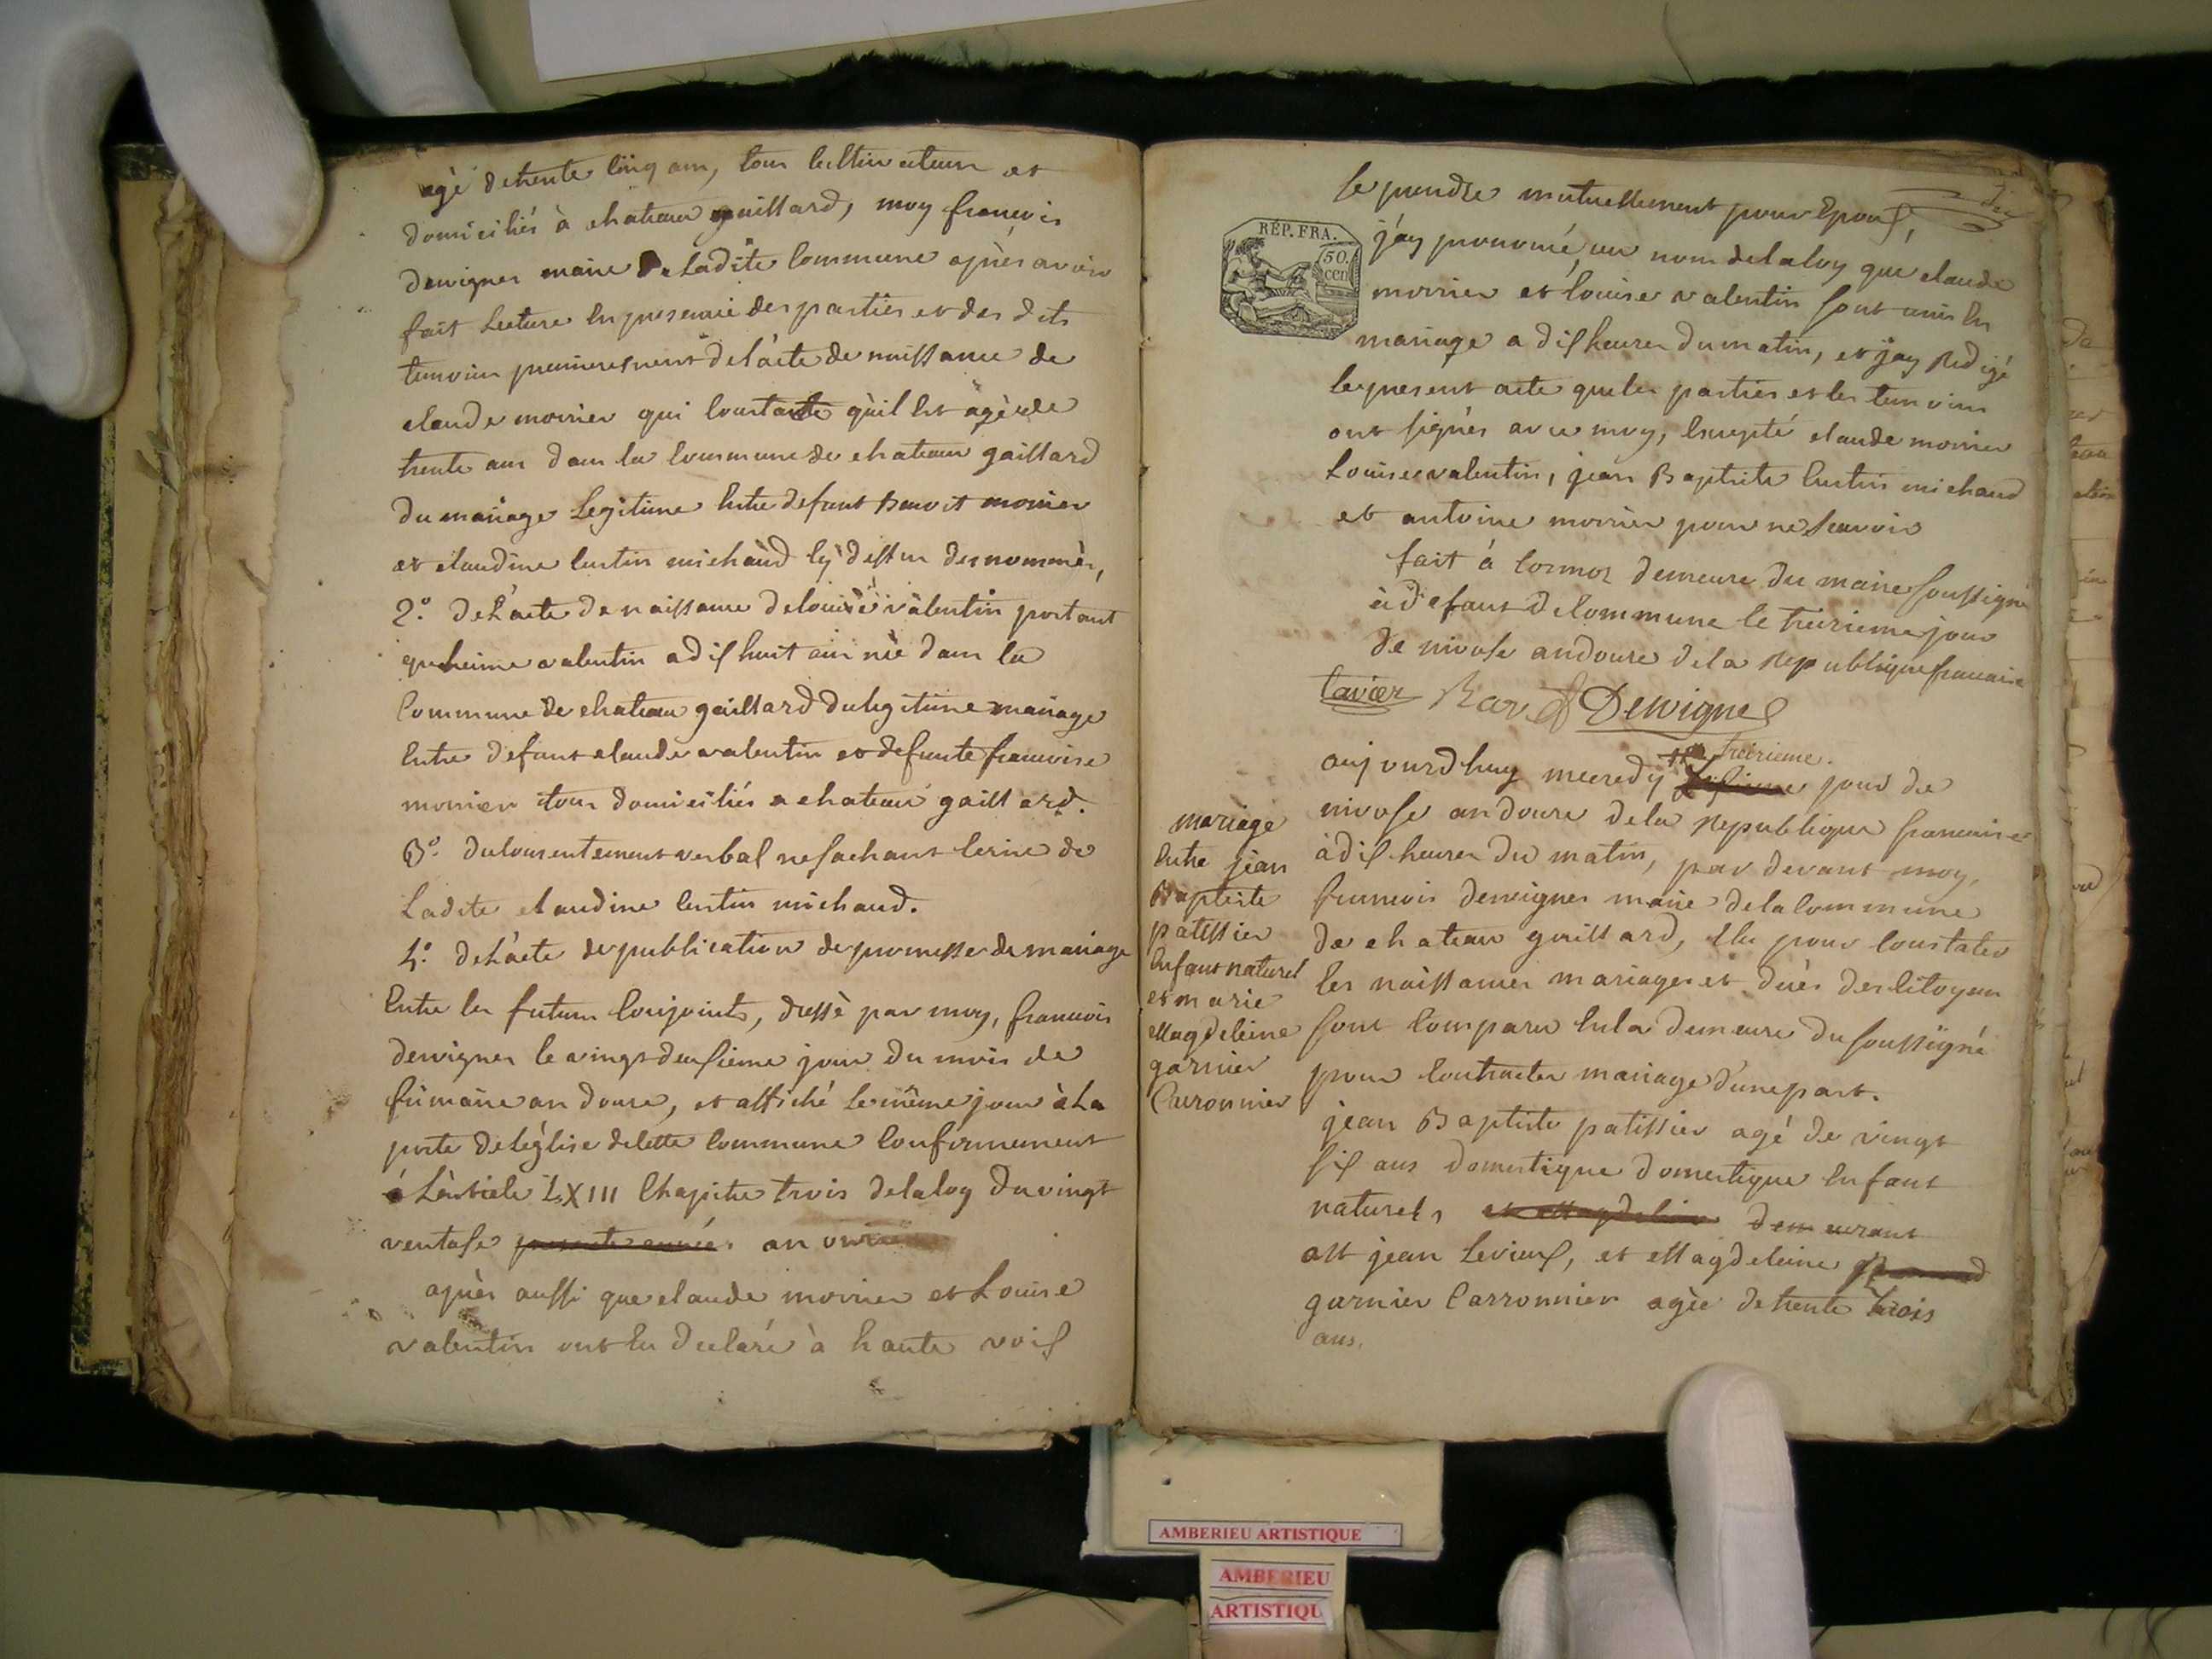 agé de trente cinq ans, tous cultivateurs et
domiciliés à chateau gaillard, moy francois
dervignes maire de Ladite Commune après avoir
fait Lecture en presence des parties et des dits
temoins premierement de l'acte de naissance de
claude monier qui Constate qu'il est agé de
trente ans dans la Commune de chateau gaillard
du mariage Legitime Entre defunt Benoit monier
et claudine Custin michaud cy dessus denommés,
2º. de L'acte de naissance de louise valentin portant
que valentin a dix huit ans née dans la
Commune de chateau gaillard du legitime mariage
Entre defunt claude valentin et defunte francoise
monier tous domiciliés a chateau gaillard.
3º. du Consentement verbal ne sachant Ecrire de
Ladite claudine Custin michaud.
4º. de L'acte de publication de promesse de mariage
Entre les futurs Conjoints, dressé par moy, francois
dervignes le vingt deuxieme jour du mois de
frimaire an douze, et affiché le même jour à La
porte de leglise de Cette Commune Conformement
á L'article LXIII Chapitre trois de la loy du vingt
ventose presente année an onze
après aussi que claude monier et Louise
valentin ont Eu declaré à haute voix
se prendre mutuellement pour Epoux,
RÉP. FRA.
50.
cen
j'ay prononcé au nom de la loy que claude
monier et louise valentin sont unis En
mariage a dix heures du matin, et j'ay Redigé
le present acte que les parties et les temoins
ont signés avec moy, Excepté claude monier
Louise valentin, jean Baptiste Custin michaud
et antoine monier pour ne Scavoir
fait à Cormoz demeure du maire soussigné
à defaut de Commune le treizieme jour
de nivose an douze de la Republique francaise
tavier Rav Dervignes
aujourdhuy mecredy treizieme jour de
nivose an douze de la Republique francaise
à dix heures du matin, par devant moy,
francois dervignes maire de la Commune
de chateau gaillard, Elu pour Constater
les naissances mariages et decès des Citoyens
sont Comparu En la demeure du soussigné
pour Contracter mariage d'une part.
mariage
Entre jean
Baptiste
patissier
Enfant naturel
et marie
Magdeleine
garnier
Carronnier
jean Baptiste patissier agé de vingt
six ans domestique domestique Enfant
naturels et Magdeleine demeurant
a St jean Levieux, et Magdeleine
garnier Carronnier agée de trente trois
ans.
AMBERIEU ARTISTIQUE
AMBERIEU
ARTISTIQU